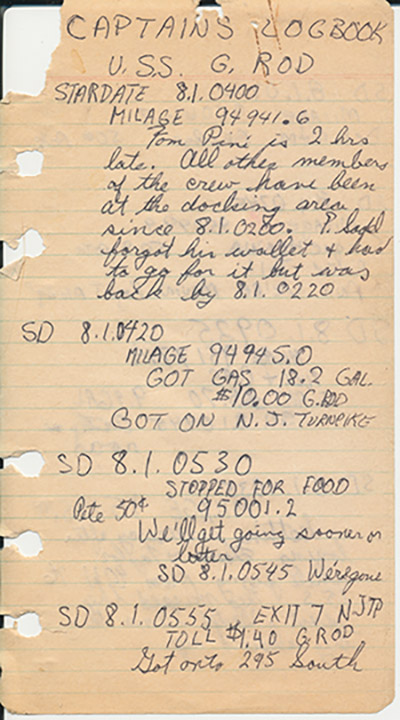 CAPTAINS LOGBOOK
U.S.S. G. ROD
STARDATE 8.1.0400
MILAGE 94941.6
Tom Pini is 2 hrs
late. All other members
of the crew have been
at the docking area
since 8.1.0200. P.
forgot his wallet & had
to go for it but was
back by 8.1.0220
SD 8.1.0420
MILAGE 94945.0
GOT GAS - 18.2 GAL.
$10.00 G.ROD
GOT ON N.J. TURNPIKE
SD 8.1.0530
STOPPED FOR FOOD
Pete 50¢ 95001.2
We'll get going sooner or
later
SD 8.1.0545 We're gone
SD 8.1.0555 EXIT 7 NJTP
TOLL $1.40 G.ROD
Got onto 295 South